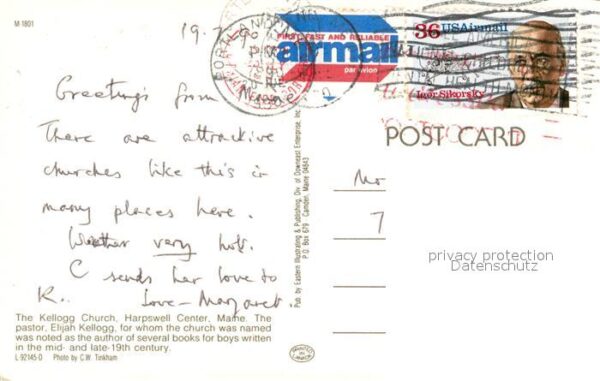 M-1801
19.7.90
FIRST, FAST AND RELIABLE
airmail
par avion
36 USAirmail
Igor Sikorsky
PORTLAND
POST CARD
Greetings from Maine
There are attractive
churches like this in
many places here.
Weather very hot.
C sends her love to
K. Love - Margaret.
Mr
7
privacy protection
Datenschutz
Pub. by Eastern Illustrating & Publishing, Div. of Downeast Enterprise, Inc.
P.O. Box 679 Camden, Maine 04843
The Kellogg Church, Harpswell Center, Maine. The
pastor, Elijah Kellogg, for whom the church was named
was noted as the author of several books for boys written
in the mid- and late-19th century.
L-92145-D Photo by C.W. Tinkham